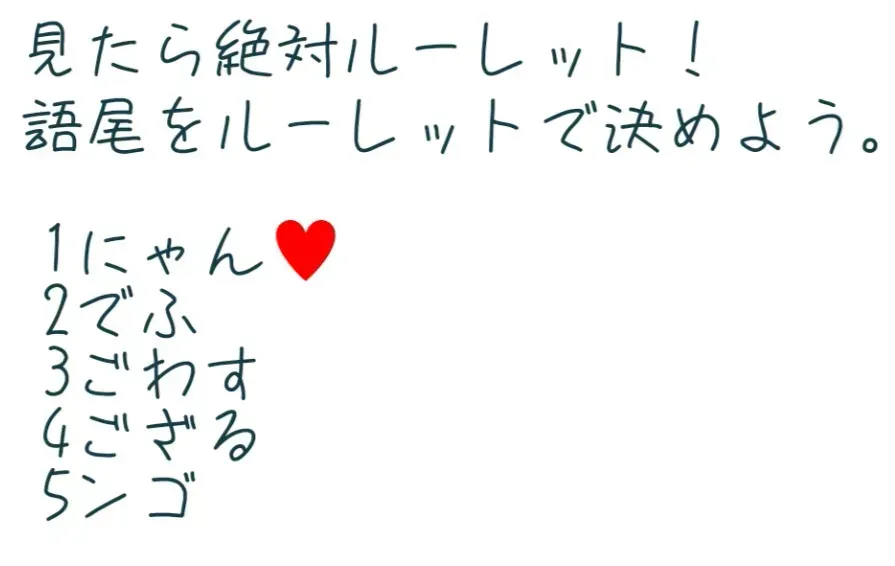 見たら絶対ルーレット！
語尾をルーレットで決めよう。
1にゃん♥
2でふ
3ごわす
4ござる
5ンゴ